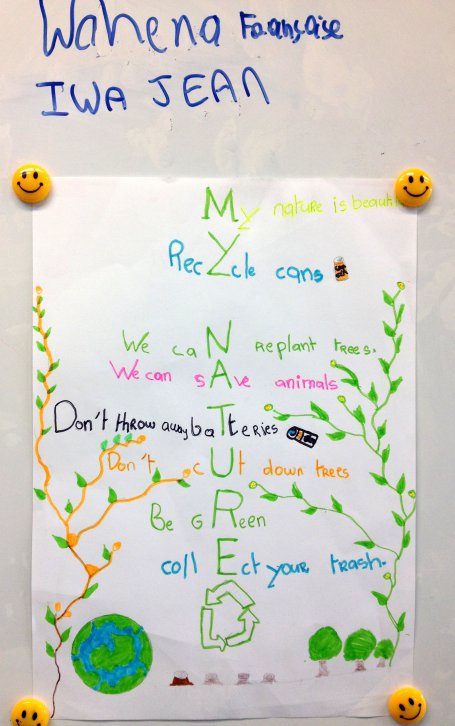 Wahena Francoise
IWA JEAN
My nature is beauti
RecYcle cans
We caN Replant trees.
We can sAve animals
Don't throw away baTteries
Don't cUt down trees
Be gReen
collEct your trash.